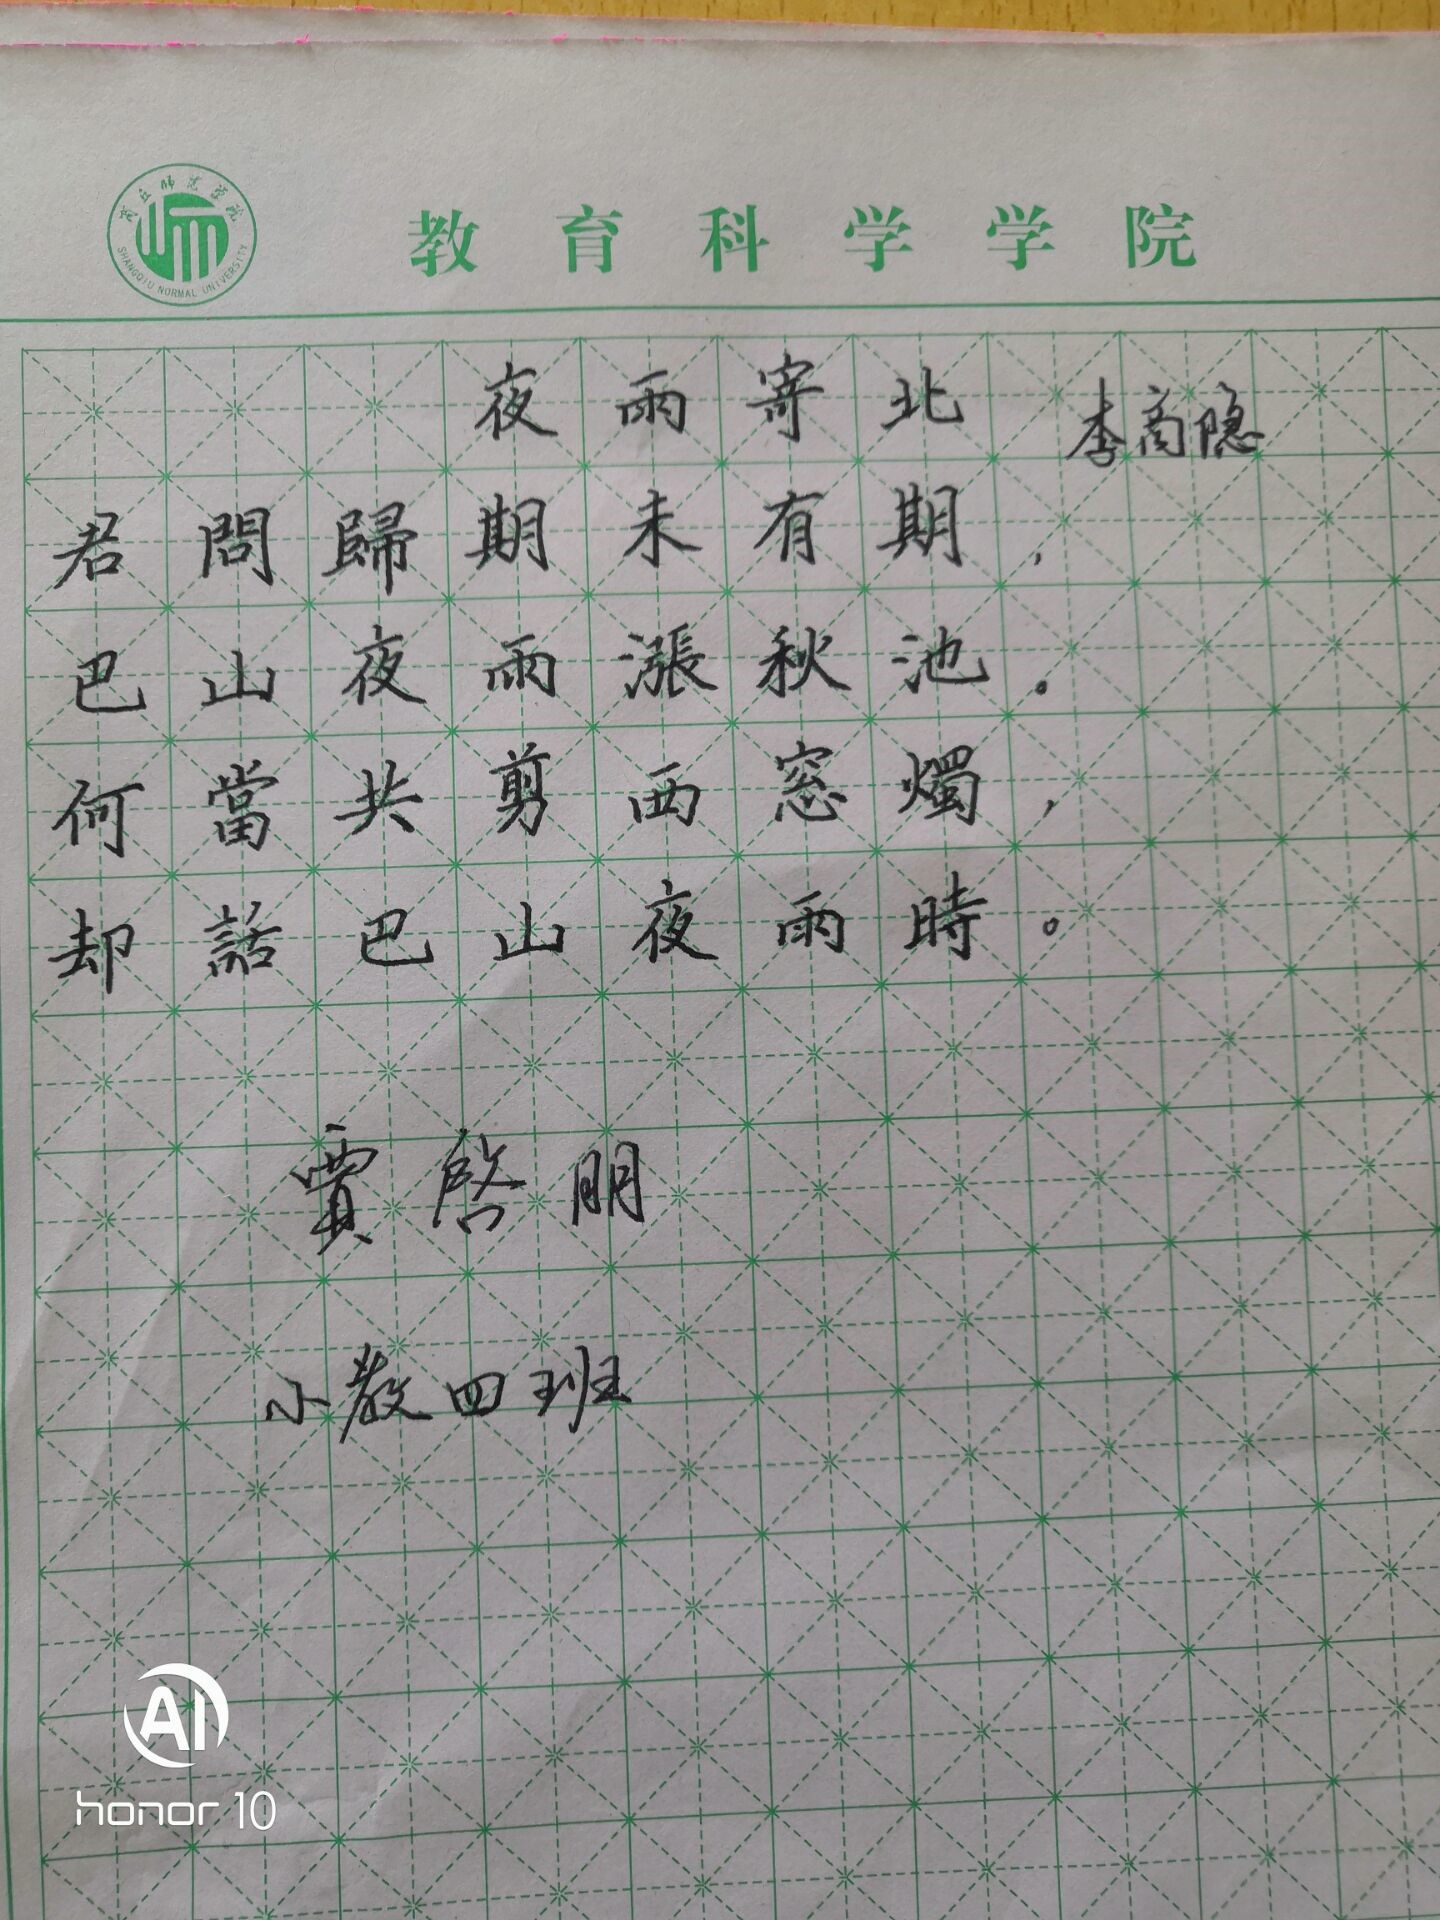 商丘师范学院
SHANGQIU NORMAL UNIVERSITY
教育科学学院
夜雨寄北 李商隐
君問歸期未有期,
巴山夜雨漲秋池。
何當共剪西窓燭,
却話巴山夜雨時。
賈啓朋
小教四班
AI
honor 10